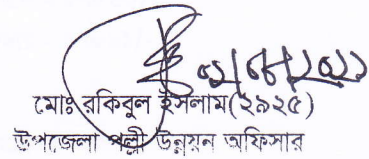 মোঃ রকিবুল ইসলাম(২৯২৫)
উপজেলা পল্লী উন্নয়ন অফিসার